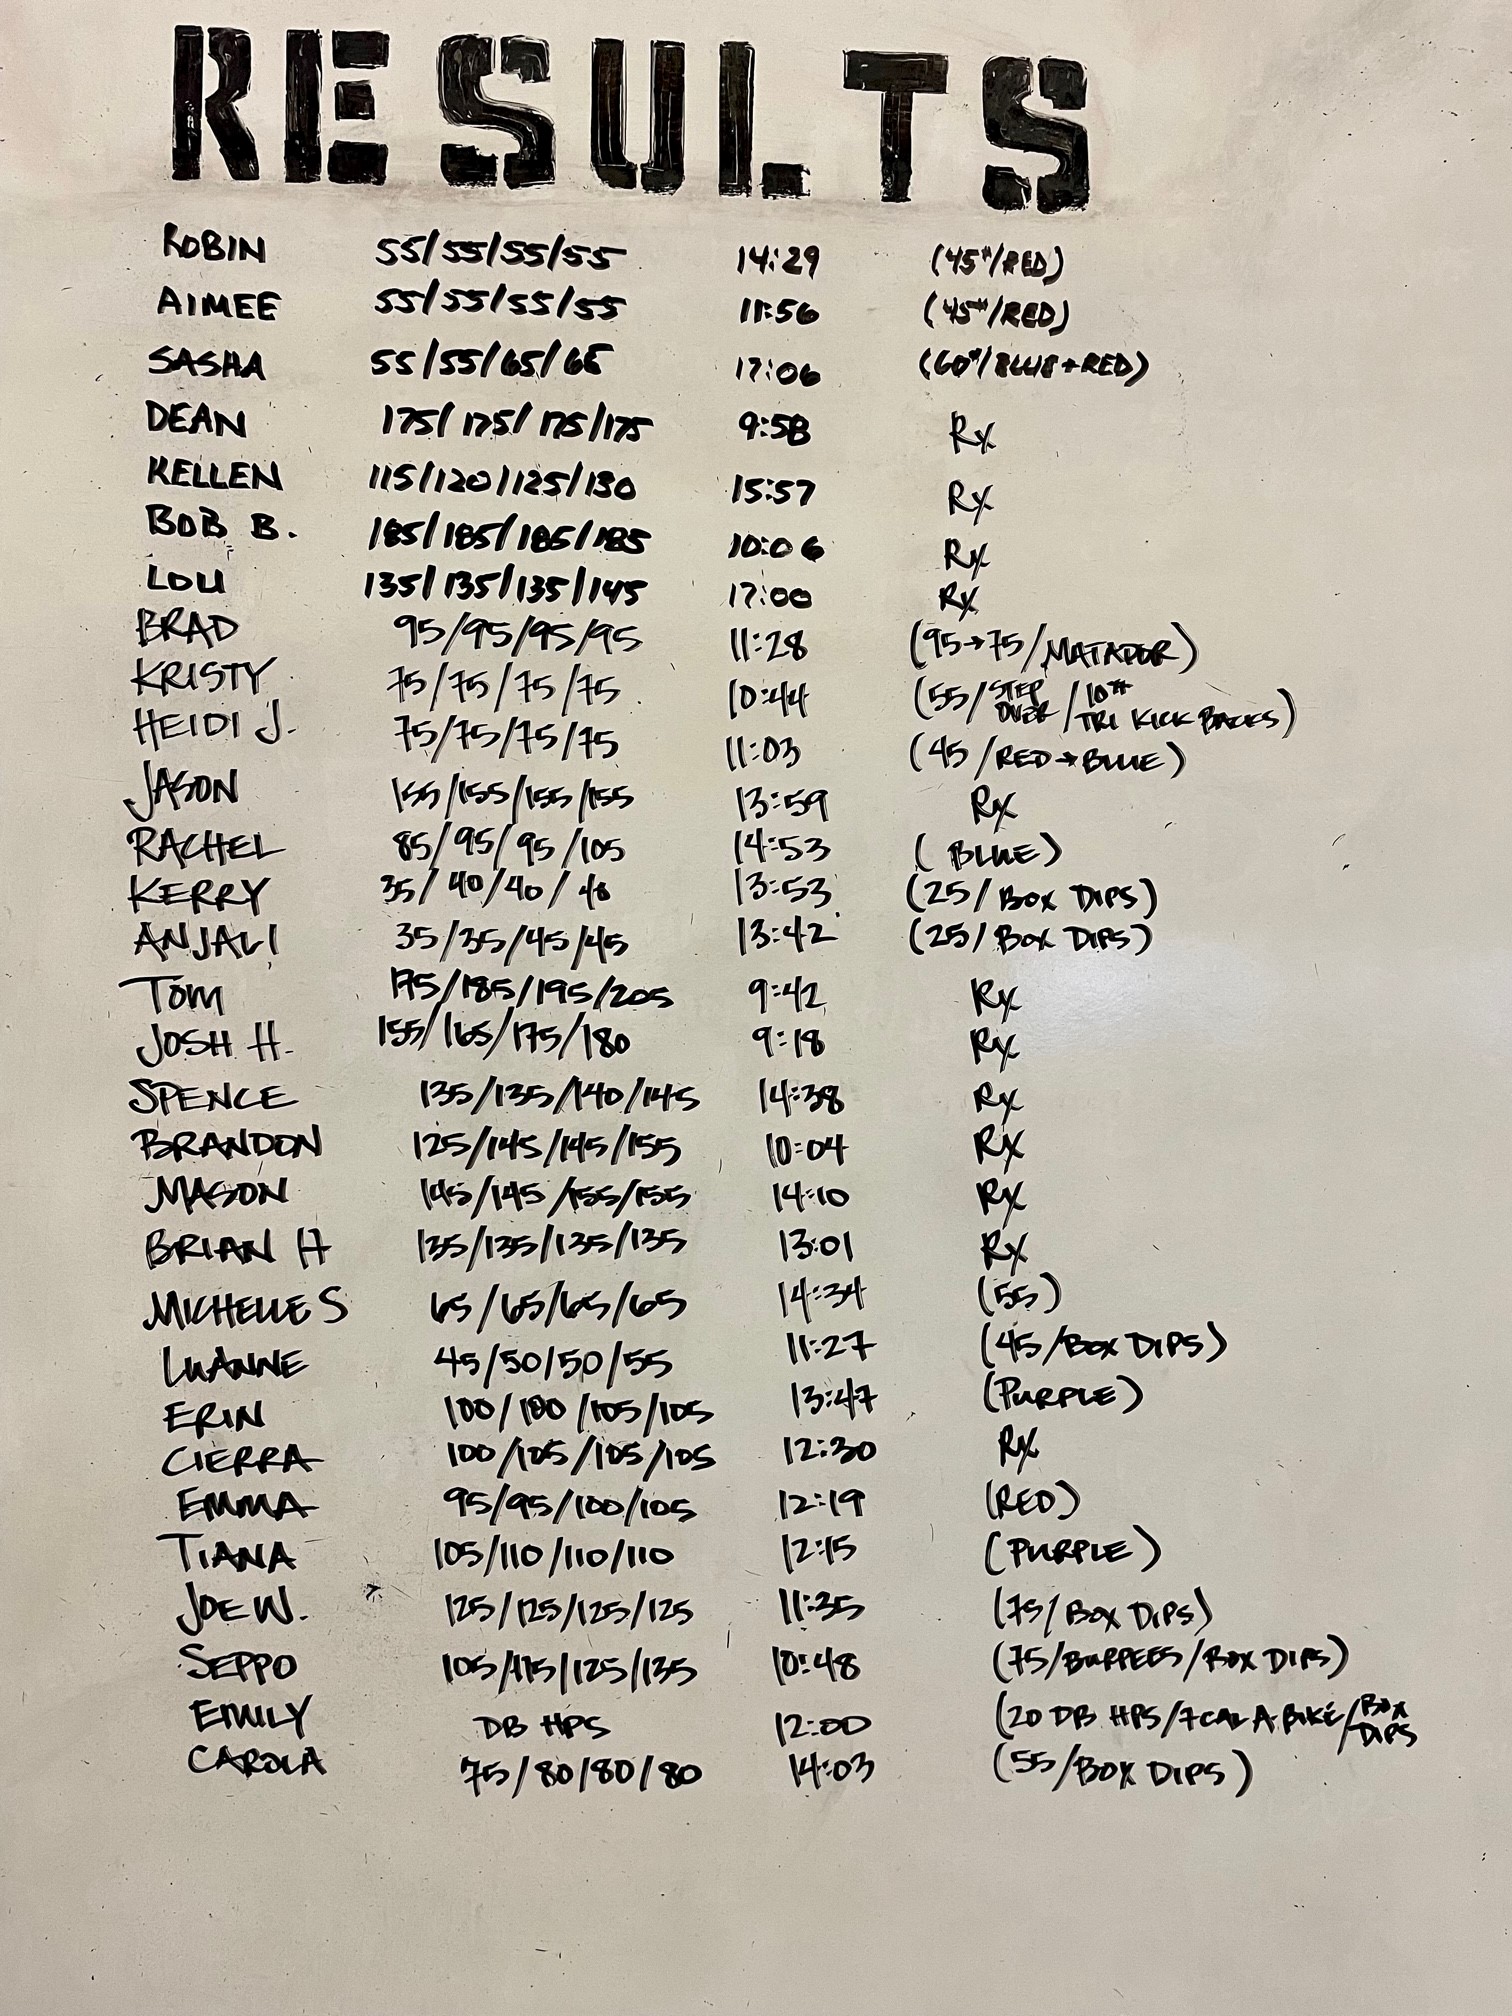 RESULTS
ROBIN 55/55/55/55 14:29 (45#/RED)
AIMEE 55/55/55/55 11:56 (45#/RED)
SASHA 55/55/65/65 17:06 (60#/BLUE+RED)
DEAN 175/175/175/175 9:58 Rx
KELLEN 115/120/125/130 15:57 Rx
BOB B. 185/185/185/185 10:06 Rx
LOU 135/135/135/145 17:00 Rx
BRAD 95/95/95/95 11:28 (95→75/MATADOR)
KRISTY 75/75/75/75 10:44 (55/STEP OVER/10# TRI KICK BACKS)
HEIDI J. 75/75/75/75 11:03 (45/RED→BLUE)
JASON 155/155/155/155 13:59 Rx
RACHEL 85/95/95/105 14:53 (BLUE)
KERRY 35/40/40/40 13:53 (25/BOX DIPS)
ANJALI 35/35/45/45 13:42 (25/BOX DIPS)
TOM 175/185/195/205 9:42 Rx
JOSH H. 155/165/175/180 9:18 Rx
SPENCE 135/135/140/145 14:38 Rx
BRANDON 125/145/145/155 10:04 Rx
MASON 145/145/155/155 14:10 Rx
BRIAN H 135/135/135/135 13:01 Rx
MICHELLE S 65/65/65/65 14:34 (55)
LUANNE 45/50/50/55 11:27 (45/BOX DIPS)
ERIN 100/100/105/105 13:47 (PURPLE)
CIERRA 100/105/105/105 12:30 Rx
EMMA 95/95/100/105 12:19 (RED)
TIANA 105/110/110/110 12:15 (PURPLE)
JOE W. 125/125/125/125 11:35 (75/BOX DIPS)
SEPPO 105/115/125/135 10:48 (75/BURPEES/BOX DIPS)
EMILY DB HPS 12:00 (20 DB HPS/7 CAL A.BIKE/BOX DIPS
CAROLA 75/80/80/80 14:03 (55/BOX DIPS)